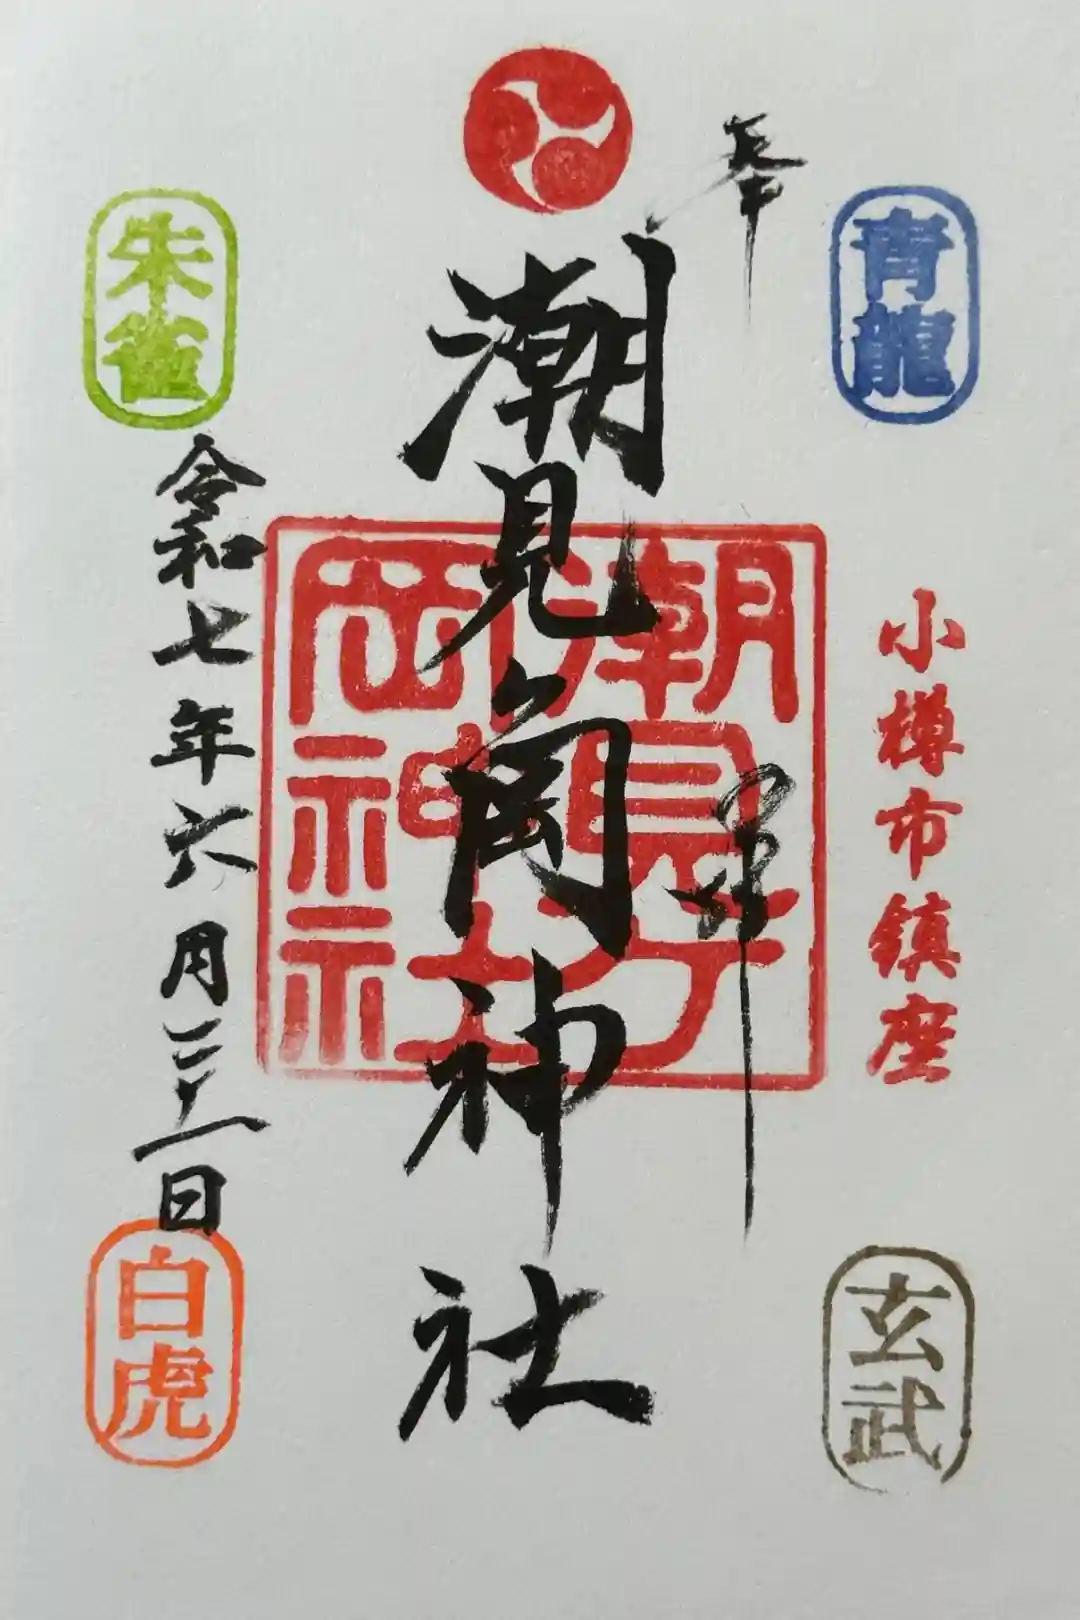 青龍
小樽市鎮座
玄武
奉拝
潮見ヶ岡神社
潮見ヶ
岡神社
朱雀
令和七年六月二十一日
白虎